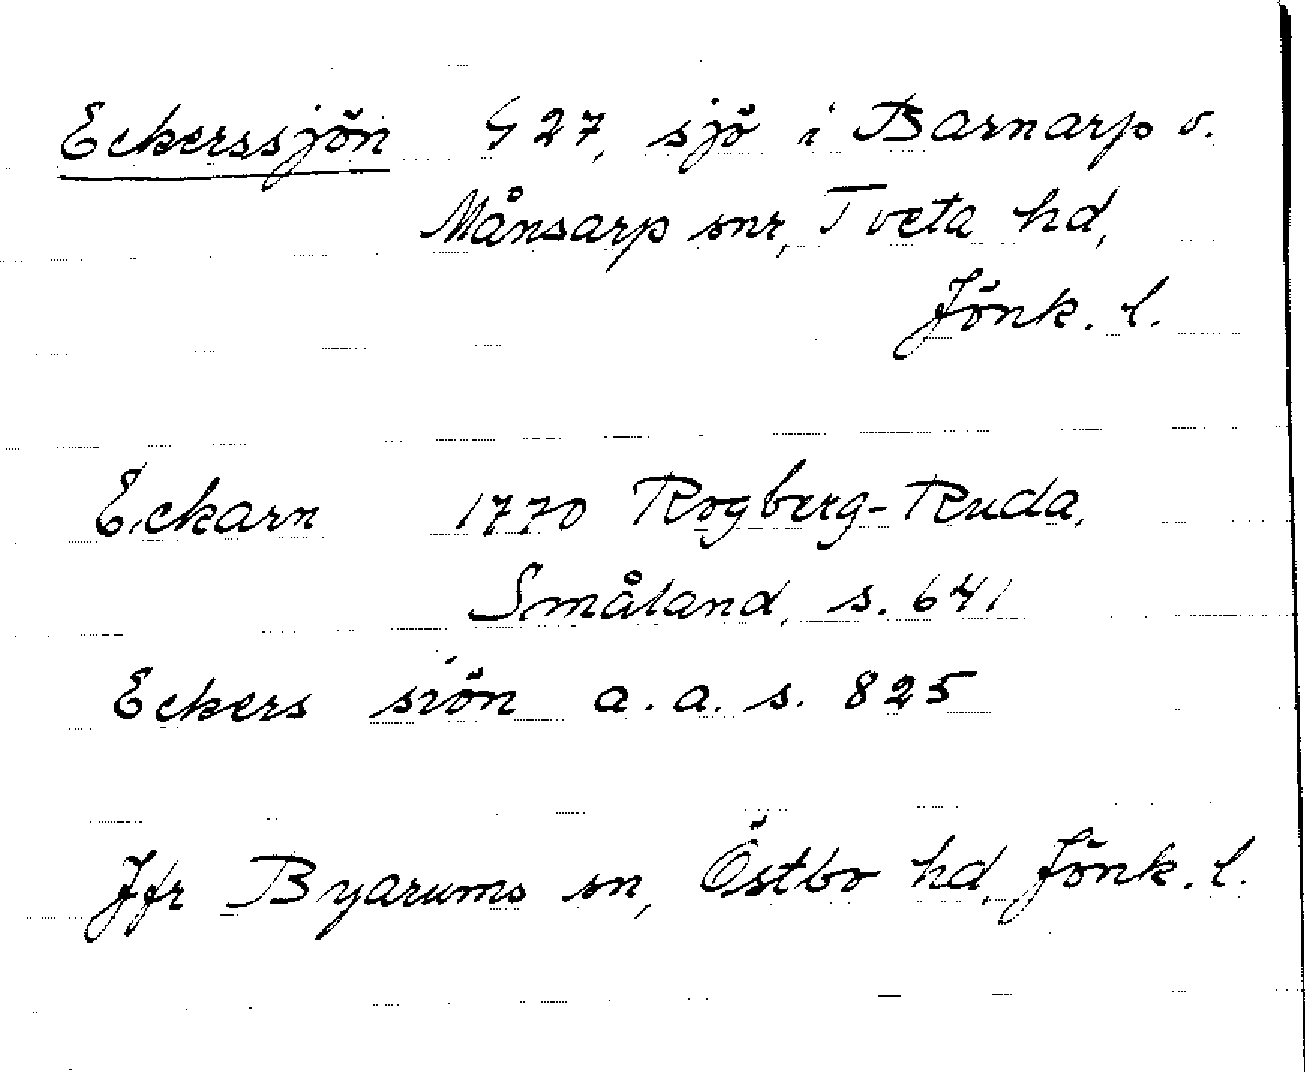 Eckerssjön G 27, sjö i Barnarp o.
Månsarp snr, Tveta hd,
Jönk. l.
Eckarn 1770 Rogberg-Ruda,
Småland, s. 641
Eckers siön a. a. s. 825
Jfr Byarums sn, Östbo hd, Jönk. l.